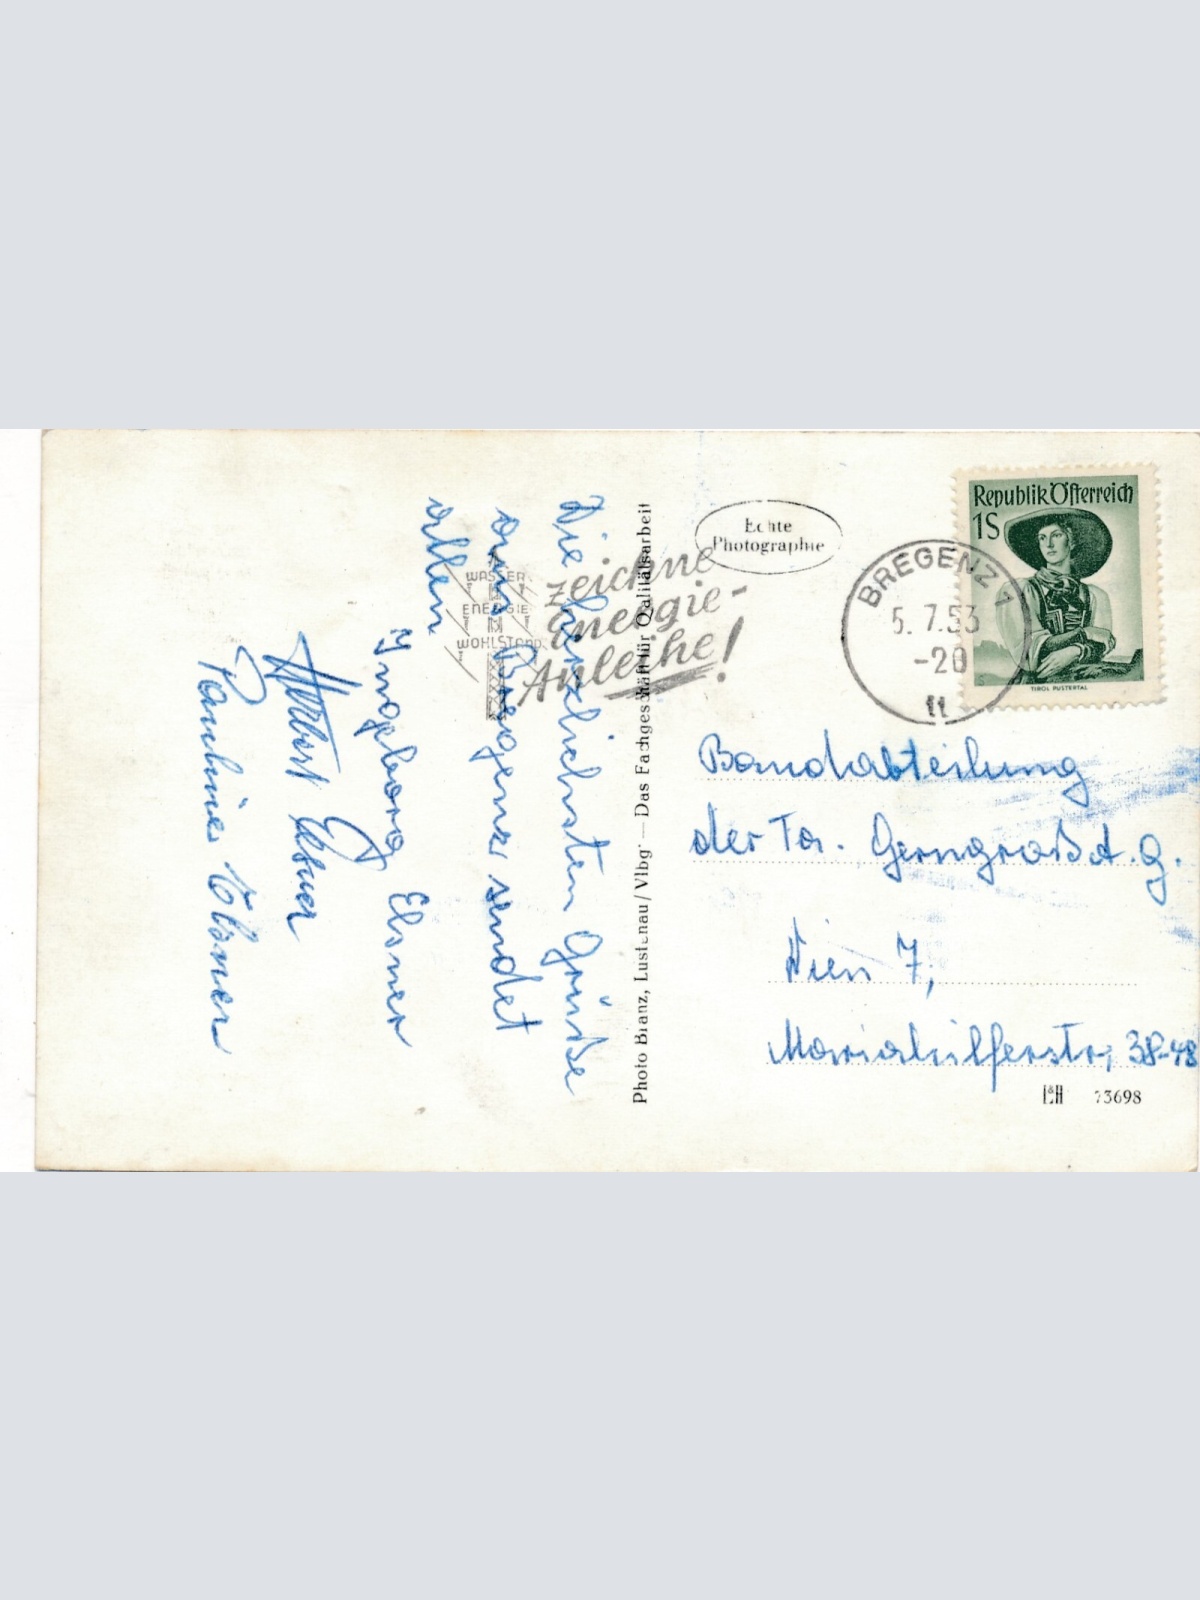 Die herzlichsten Grüße
aus Bregenz sendet
allen
Ingeborg Elsner
Herbert Elsner
Pauline Elsner
WASSER
ENERGIE
WOHLSTAND
zeichne
Energie-
Anleihe!
Photo Branz, Lustenau/Vlbg — Das Fachgeschäft für Qualitätsarbeit
Echte
Photographie
Republik Österreich
1S
TIROL PUSTERTAL
BREGENZ 1
5. 7.53
-20
tt
Bandabteilung
der Fa. Gerngroß A.G.
Wien 7,
Mariahilferstr, 38-48
L&H 73698